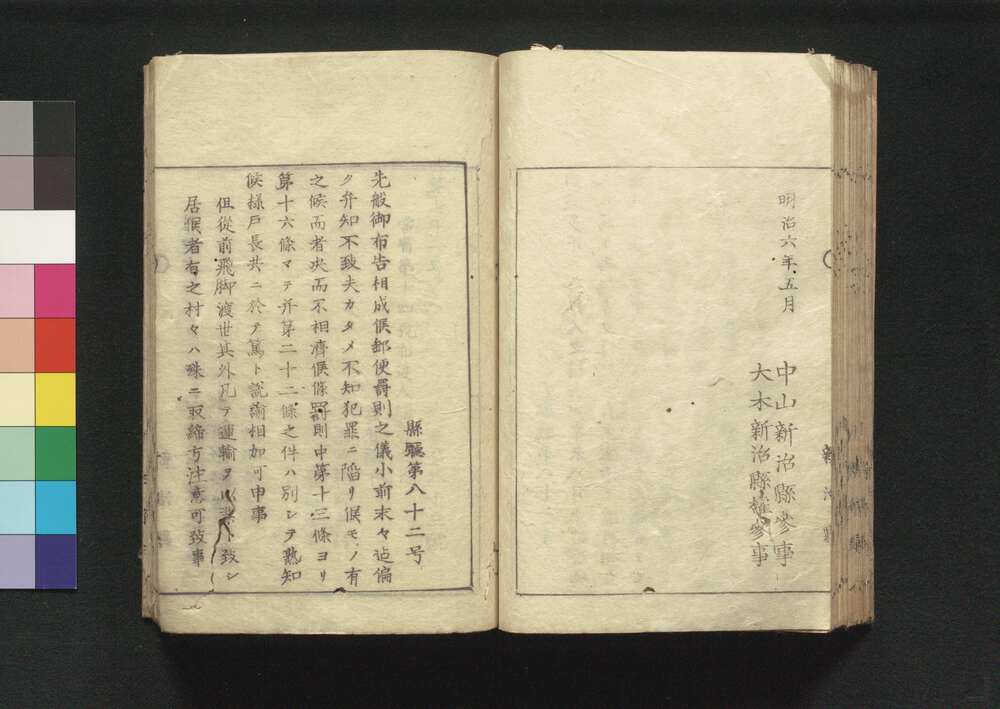 明治六年五月
中山新治縣參事
大木新治縣權參事
新治縣
縣廳第八十二号
先般御布告相成候郵便罰則之儀小前末々迠偏
ク弁知不致夫カタメ不知犯罪ニ陷リ候モノ有
之候而者決而不相濟候條罰則中第十三條ヨリ
第十六條マテ并第二十二條之件ハ別シテ熟知
候樣戸長共ニ於テ篤ト説諭相加可申事
但從前飛脚渡世其外凡テ運輸ヲ以業ト致シ
居候者有之村々ハ殊ニ取締方注意可致事